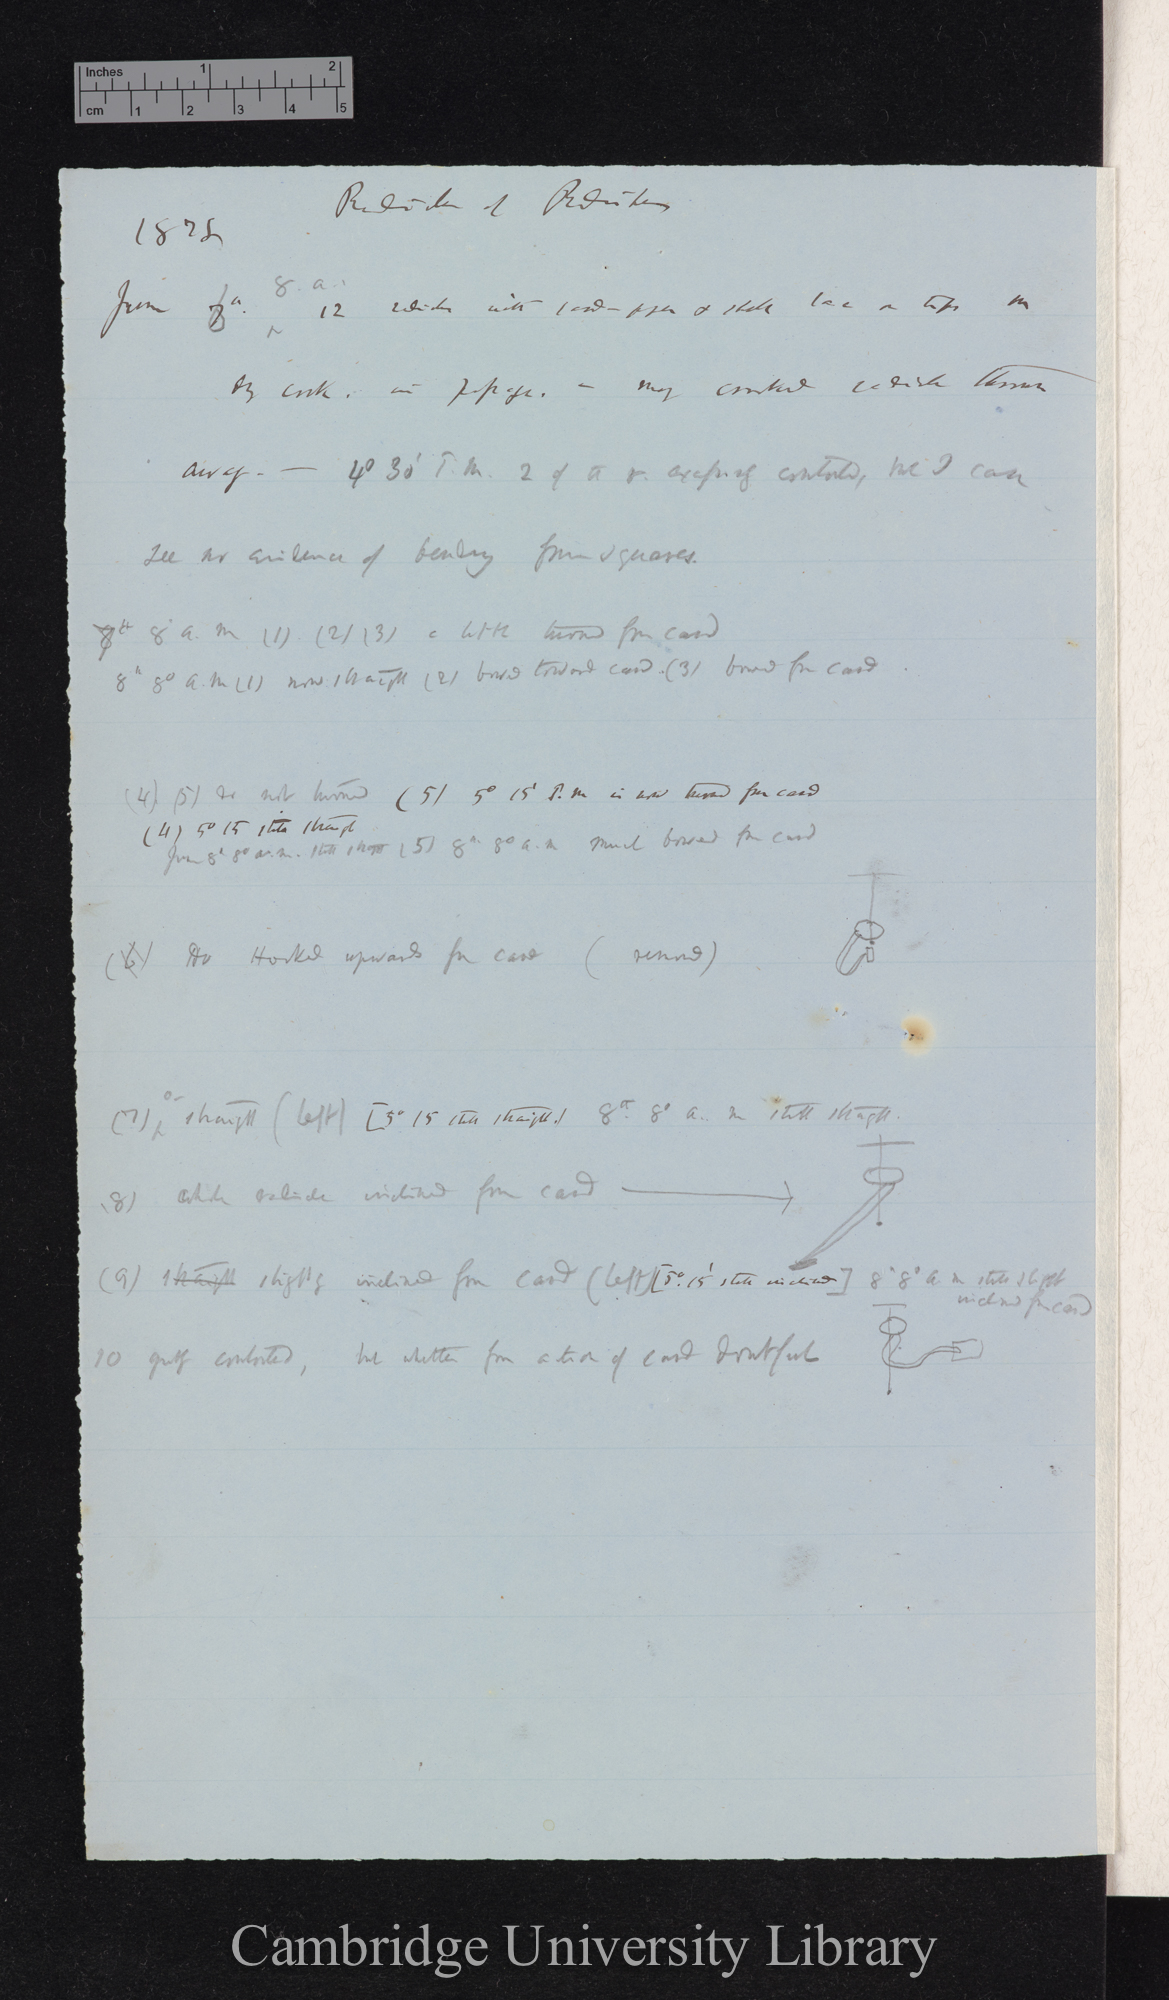 Inches 1 2
cm 1 2 3 4 5
Radicles of Radishes
1878
June 8 a. 12 radicles with sand-paper & shell lac on tips
dry cork, many crooked radicles thrown
away. — 4° 30' P.M. 2 of contorted, but I can
see no evidence of bending from squares.
8 a. m (1) (2) (3) a little turned from card
8 8° a.m (1) now straight (2) bowed toward card. (3) bowed from card
(4) (5) do not turned (5) 5° 15' P.m is now turned from card
(4) 5° 15 still straight
8° a.m. still straight (5) 8° a.m much bowed from card
(6) Do Hooked upwards from card (removed)
(7) straight (left) [5° 15 still straight] 8° a. m still straight.
8) whole radicle inclined from card
(9) straight slightly inclined from card (left) [5° 15' still inclined] 8° a m still slight
inclined from card
10 greatly contorted, but whether from action of card doubtful
Cambridge University Library